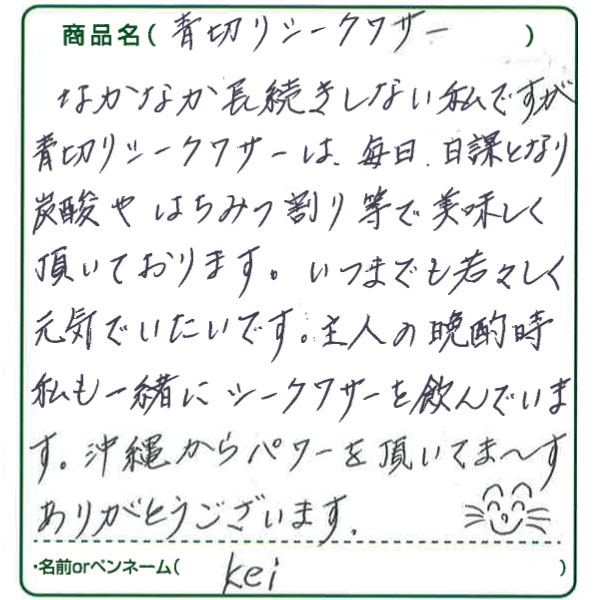 商品名( 青切りシークワサー )
なかなか長続きしない私ですが
青切りシークワサーは、毎日、日課となり
炭酸や はちみつ割り等で美味しく
頂いております。いつまでも若々しく
元気でいたいです。主人の晩酌時
私も一緒にシークワサーを飲んでいま
す。沖縄からパワーを頂いてま〜す
ありがとうございます。
・名前orペンネーム( kei )